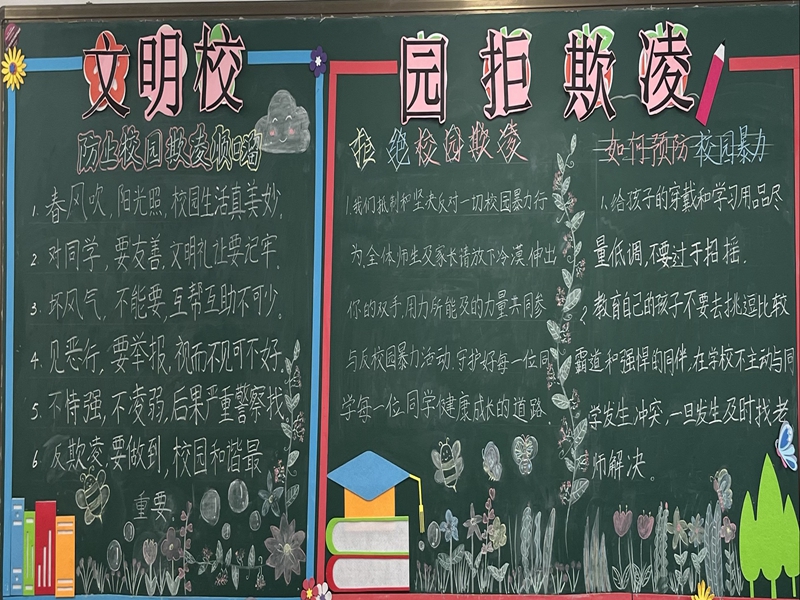 文明校园 拒欺凌
防止校园欺凌顺口溜
1. 春风吹，阳光照，校园生活真美妙。
2. 对同学，要友善，文明礼让要记牢。
3. 坏风气，不能要，互帮互助不可少。
4. 见恶行，要举报，视而不见可不好。
5. 不恃强，不凌弱，后果严重警察找
6 反欺凌，要做到，校园和谐最
重要
拒绝校园欺凌
1.我们抵制和坚决反对一切校园暴力行
为，全体师生及家长请放下冷漠，伸出
你的双手，用力所能及的力量共同参
与反校园暴力活动，守护好每一位同
学每一位同学健康成长的道路。
如何预防校园暴力
1、给孩子的穿戴和学习用品尽
量低调，不要过于招摇。
2、教育自己的孩子不要去挑逗比较
霸道和强悍的同伴，在学校不主动与同
学发生冲突，一旦发生及时找老
师解决。